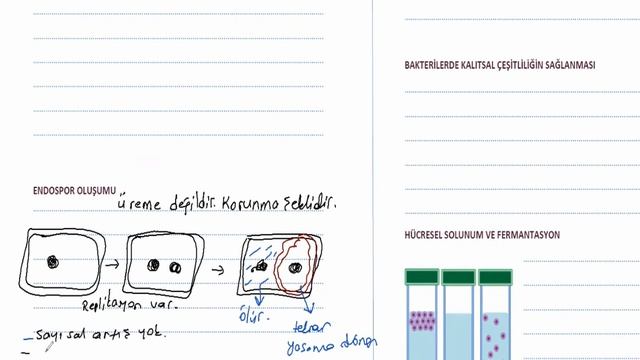 BAKTERİLERDE KALITSAL ÇEŞİTLİLİĞİN SAĞLANMASI
ENDOSPOR OLUŞUMU
üreme değildir. Korunma şeklidir.
HÜCRESEL SOLUNUM VE FERMANTASYON
Replikasyon var.
ölür.
tekrar
yaşama döner
- Sayısal artış yok.
-